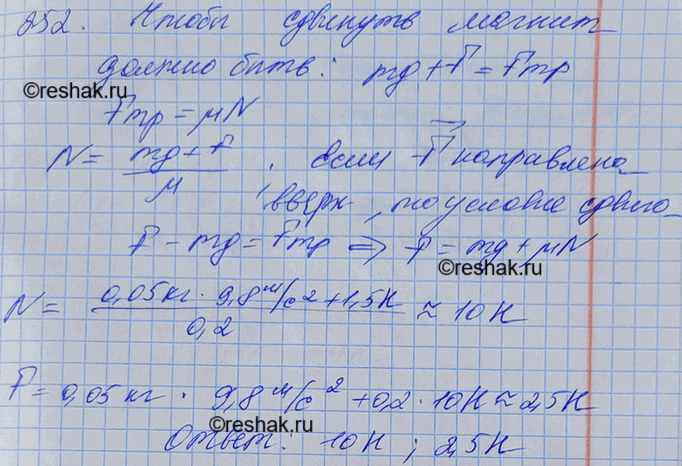 852. Чтобы сдвинуть магнит
должно быть: mg + F = Fтр
©reshak.ru
Fтр = μN
N = (mg + F)/μ . если F⃗ направлена
вверх, то условие сдвига
F - mg = Fтр => F = mg + μN
©reshak.ru
N = (0,05кг · 9,8 м/с² + 1,5Н)/0,2 ≈ 10Н
F = 0,05кг · 9,8 м/с² + 0,2 · 10Н ≈ 2,5Н
Ответ: 10Н ; 2,5Н
©reshak.ru